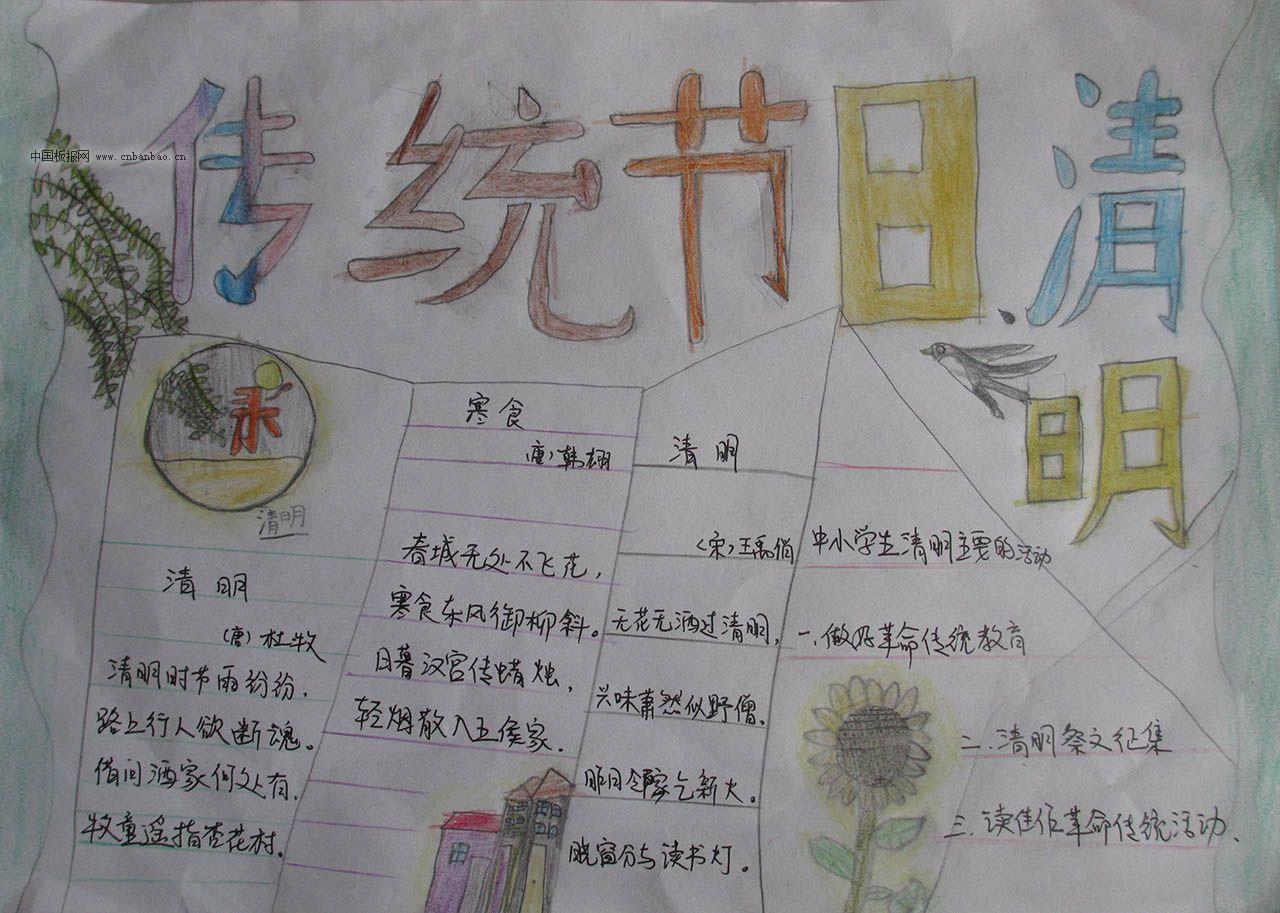 传统节日清明
中国板报网 www.cnbanbao.cn
清明
清明
(唐)杜牧
清明时节雨纷纷,
路上行人欲断魂。
借问酒家何处有,
牧童遥指杏花村。
寒食
(唐)韩翃
春城无处不飞花,
寒食东风御柳斜。
日暮汉宫传蜡烛,
轻烟散入五侯家.
清明
(宋)王禹偁
无花无酒过清明,
兴味萧然似野僧.
昨日邻家乞新火。
晓窗分与读书灯。
中小学生清明主要的活动
一.做好革命传统教育
二.清明祭文征集
三.读佳作革命传统活动.